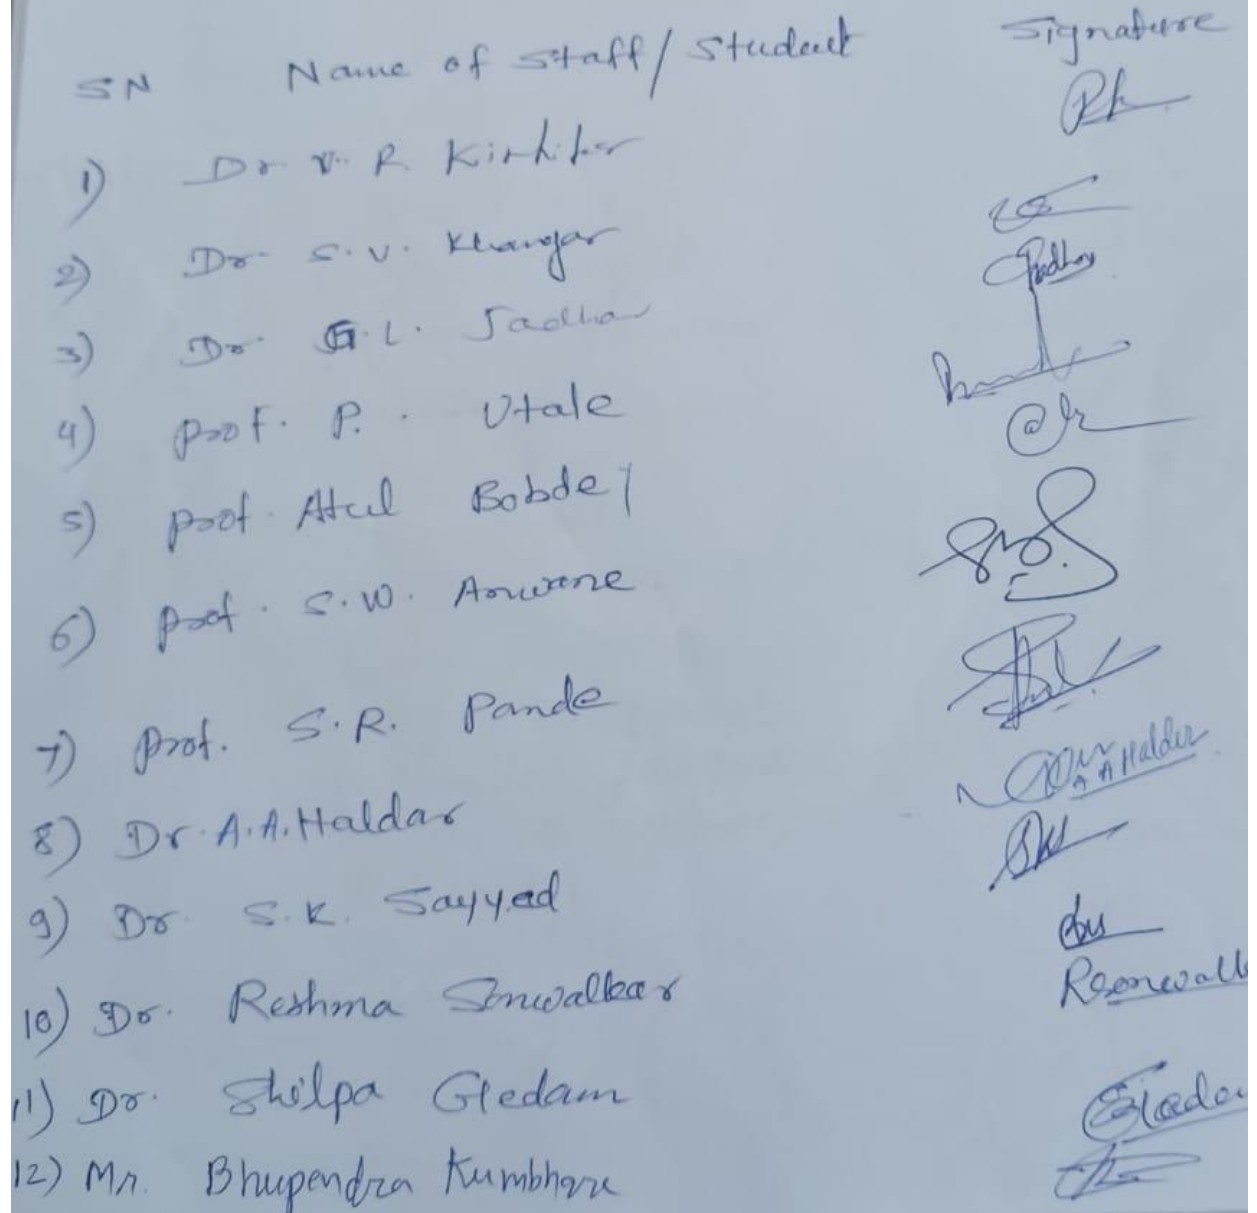 SN Name of Staff/Student Signature
1) Dr V. R. Kirkiker
2) Dr. S.V. Khangar
3) Dr. G.L. Jadhav
4) Prof. P. . Utale
5) Prof. Atul Bobde
6) Prof. S.W. Anwane
7) Prof. S.R. Pande
8) Dr. A.A. Haldar A A Halder
9) Dr. S.K. Sayyed
10) Dr. Reshma Sonwalkar RSonwalk
11) Dr. Shilpa Gedam
12) Mr. Bhupendra Kumbhare